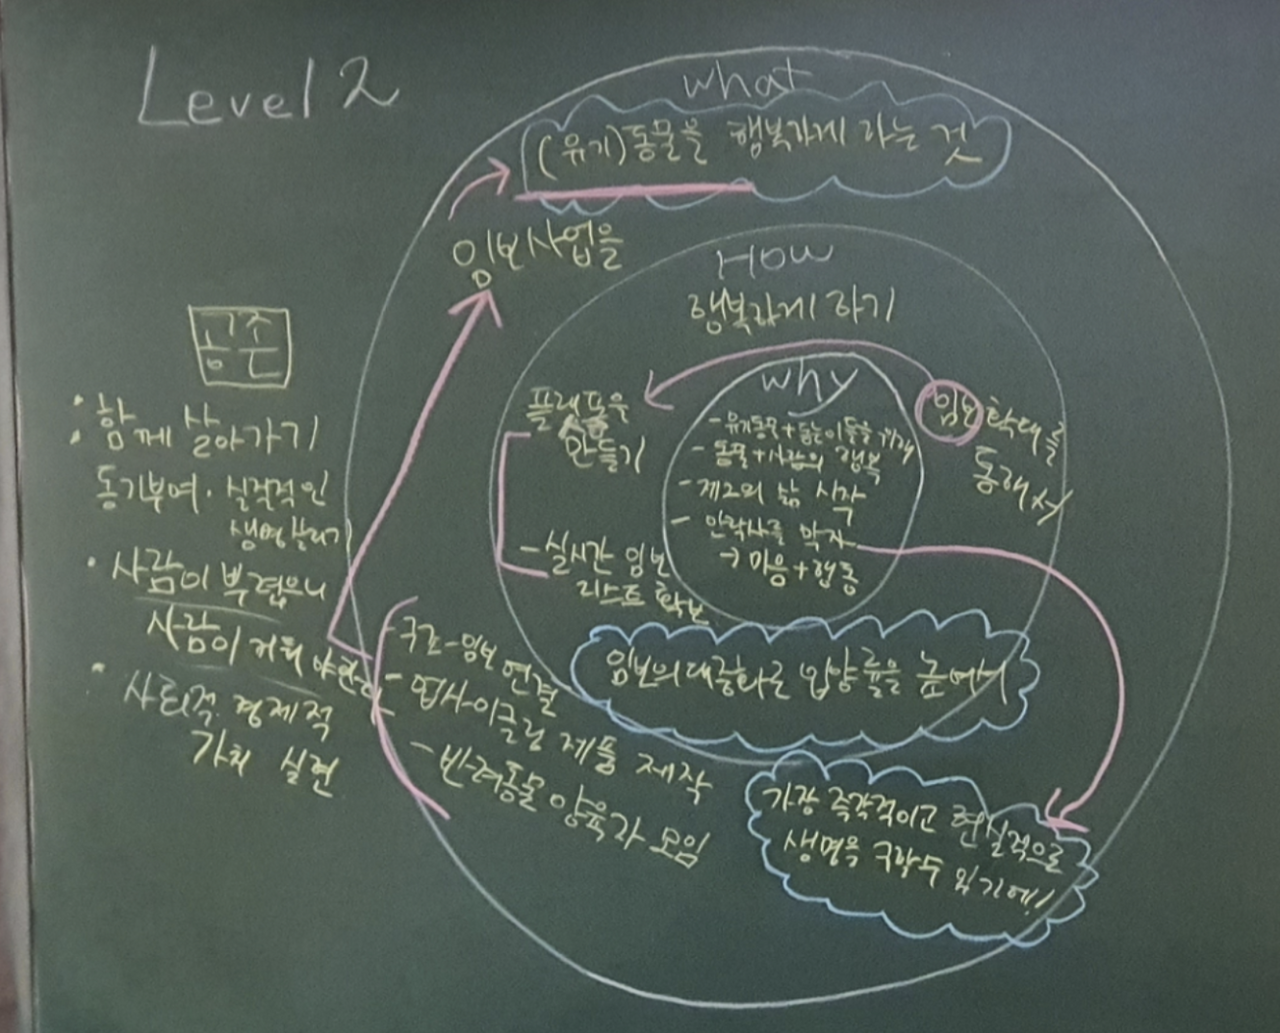 Level 2
what
(유기)동물을 행복하게 하는 것
임보사업을
How
행복하게 하기
why
- 유기동물+돕는이들을 위해
- 동물+사람의 행복
- 제2의 삶 시작
- 안락사를 막자
→ 마음+행동
플랫폼을
만들기
- 실시간 임보
리스트 확보
임보 확대를
통해서
임보의 대중화로 입양률을 높여서
가장 즉각적이고 현실적으로
생명을 구할 수 있기에!
- 구조-임보 연결
- 업사이클링 제품 제작
- 반려동물 양육자 모임
공존
: 함께 살아가기
동기부여. 실질적인
생명살리기
· 사람이 버렸으니
사람이 거둬야한다
· 사회적 경제적
가치 실현